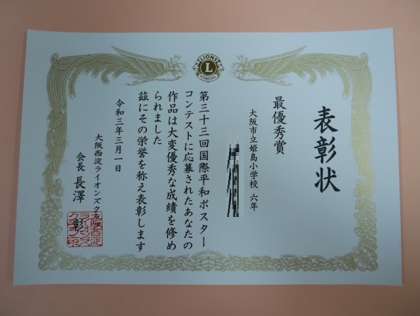 表彰状
最優秀賞
大阪市立姫島小学校 六年
第三十三回国際平和ポスター
コンテストに応募されたあなたの
作品は大変優秀な成績を修め
られました
茲にその栄誉を称え表彰します
令和三年三月一日
大阪西淀ライオンズクラブ
会長 長澤 彰